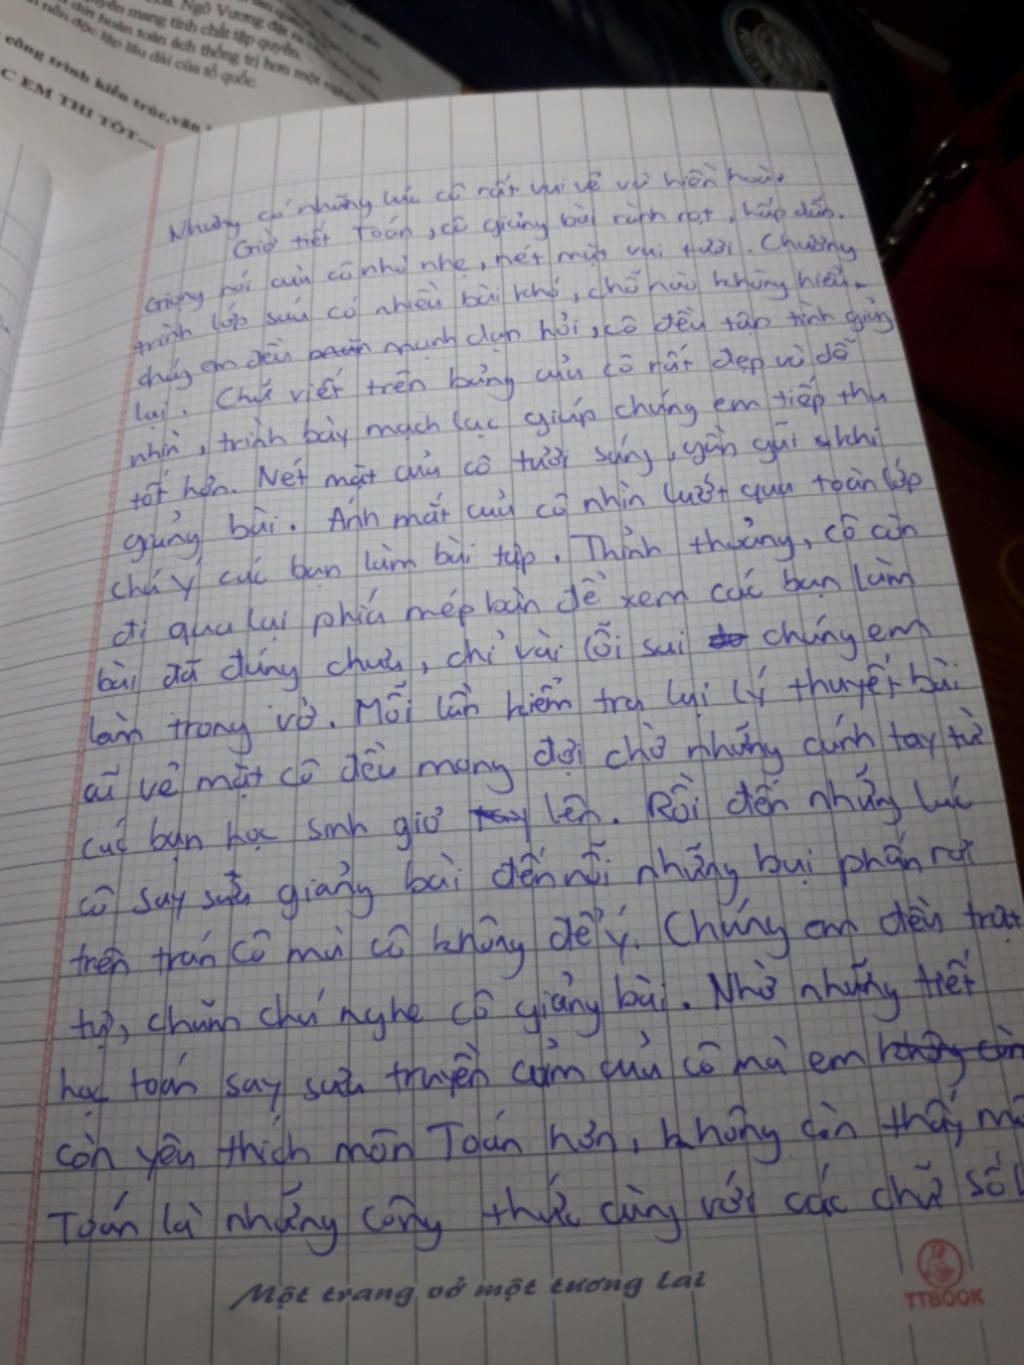 Ngô Vương đặt ra
mang tính chất tập quyền.
hoàn toàn ách thống trị hơn một
nền độc lập lâu dài của tổ quốc.
công trình kiến trúc, văn
C EM THI TỐT
Nhưng có những lúc cô rất vui vẻ và hiền hoà.
Giờ tiết Toán, cô giảng bài rành rọt, hấp dẫn.
Giọng nói của cô nhỏ nhẹ, nét mặt vui tươi. Chương
trình lớp sáu có nhiều bài khó, chỗ nào không hiểu,
chúng em đều mạnh dạn hỏi, cô đều tận tình giảng
lại. Chữ viết trên bảng của cô rất đẹp và dễ
nhìn, trình bày mạch lạc giúp chúng em tiếp thu
tốt hơn. Nét mặt của cô tươi sáng, gần gũi khi
giảng bài. Ánh mắt của cô nhìn lướt qua toàn lớp
chú ý các bạn làm bài tập. Thỉnh thoảng, cô còn
đi qua lại phía mép bàn để xem các bạn làm
bài đã đúng chưa, chỉ vài lỗi sai chúng em
làm trong vở. Mỗi lần kiểm tra lại lý thuyết bài
cũ vẻ mặt cô đều mong đợi chờ những cánh tay từ
các bạn học sinh giơ lên. Rồi đến những lúc
cô say sưa giảng bài đến nỗi những bụi phấn rơi
trên trán cô mà cô không để ý. Chúng em đều trật
tự, chăm chú nghe cô giảng bài. Nhờ những tiết
học toán say sưa truyền cảm của cô mà em không còn
còn yêu thích môn Toán hơn, không còn thấy mô
Toán là những công thức cùng với các chữ số
Một trang vở một tương lai
TTBOOK